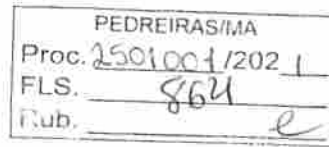 PEDREIRAS/MA
Proc. 2501001/2021
FLS. 864
Rub.